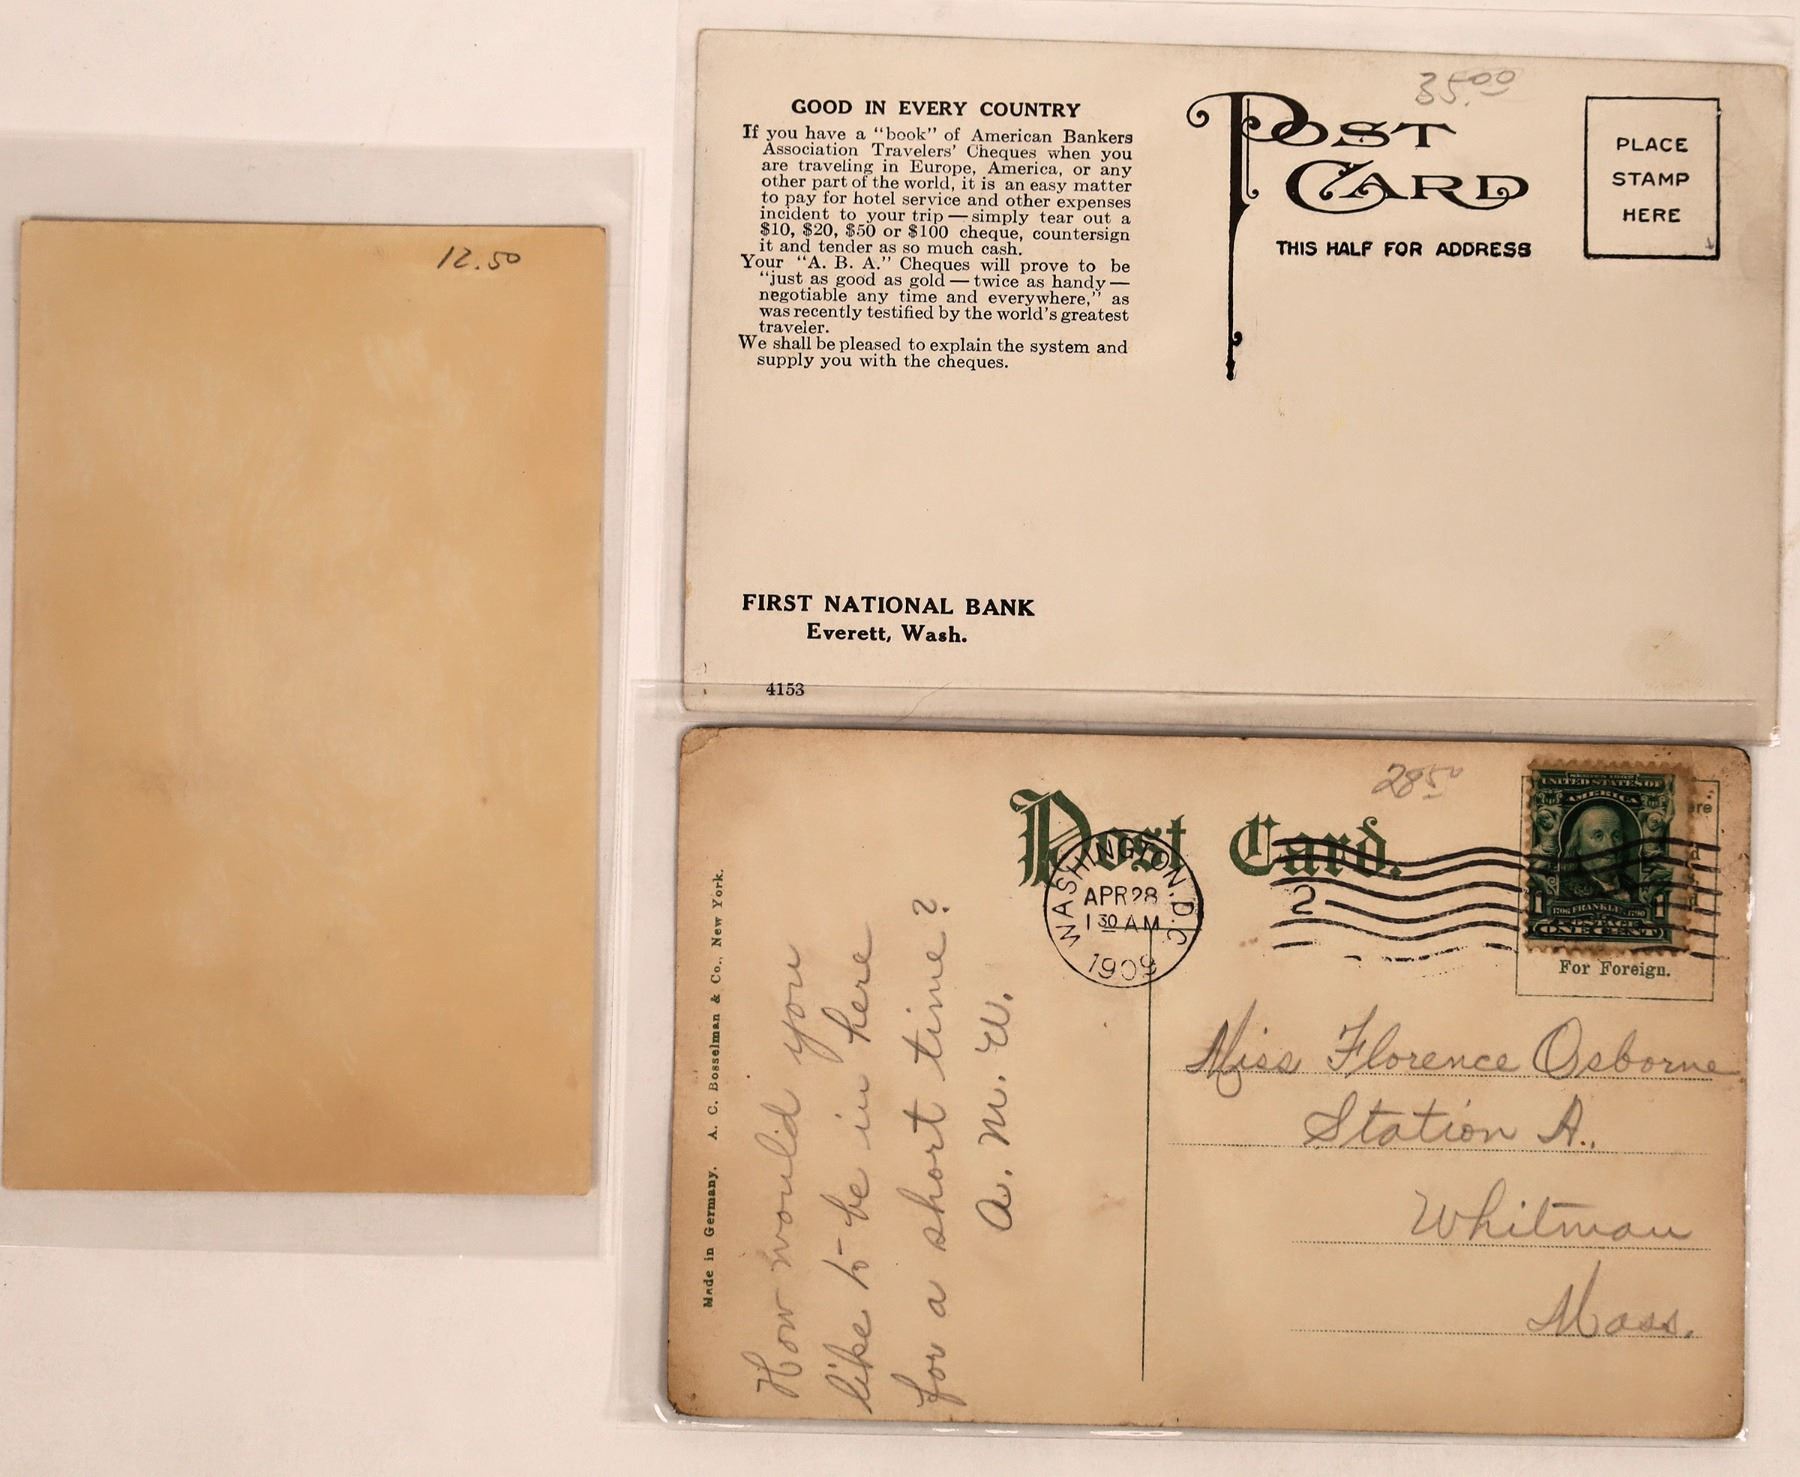 12.50
35.00
GOOD IN EVERY COUNTRY
If you have a "book" of American Bankers
Association Travelers' Cheques when you
are traveling in Europe, America, or any
other part of the world, it is an easy matter
to pay for hotel service and other expenses
incident to your trip — simply tear out a
$10, $20, $50 or $100 cheque, countersign
it and tender as so much cash.
Your "A. B. A." Cheques will prove to be
"just as good as gold — twice as handy —
negotiable any time and everywhere," as
was recently testified by the world's greatest
traveler.
We shall be pleased to explain the system and
supply you with the cheques.
FIRST NATIONAL BANK
Everett, Wash.
4153
POST
CARD
THIS HALF FOR ADDRESS
PLACE
STAMP
HERE
28.50
Post Card.
WASHINGTON, D.C.
APR 28
1 30 AM
1909
2
UNITED STATES OF
AMERICA
1 FRANKLIN 1
POSTAGE
ONE CENT
For Foreign.
Made in Germany. A. C. Bosselman & Co., New York.
How would you
like to be in here
for a short time?
A. M. W.
Miss Florence Osborne
Station A.,
Whitman
Mass.